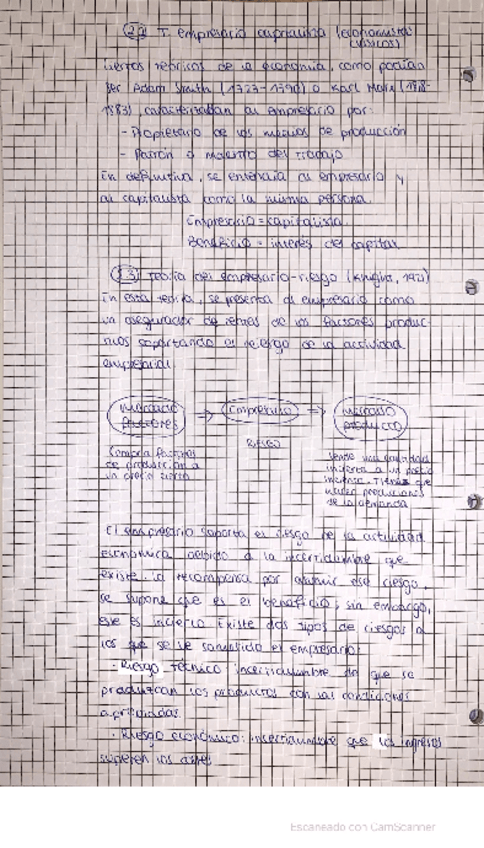 2.2) T. empresario capitalista (economistas
clásicos)
Ciertos teóricos de la economía, como podían
ser Adam Smith (1723-1790) o Karl Marx (1818-
1883), caracterizaban al empresario por:
- Propietario de los medios de producción
- Patrón o maestro del trabajo
En definitiva, se entendía al empresario y
al capitalista como la misma persona.
Empresario = capitalista.
Beneficio = interés del capital
2.3) Teoría del empresario-riesgo (Knight, 1921)
En esta teoría, se presenta al empresario como
un asegurador de rentas de los factores produc-
tivos soportando el riesgo de la actividad
empresarial
mercado factores → Empresario → mercado producto
RIESGO
Compra factores de producción a un precio cierto
Vende una cantidad incierta a un precio incierto. Tiene que hacer predicciones de la demanda
El empresario soporta el riesgo de la actividad
económica debido a la incertidumbre que
existe. La recompensa por asumir ese riesgo,
se supone que es el beneficio, sin embargo,
este es incierto. Existe dos tipos de riesgos a
los que se ve sometido el empresario:
· Riesgo técnico: incertidumbre de que se
produzcan los productos con las condiciones
apropiadas.
· Riesgo económico: incertidumbre que los ingresos
superen los costes
Escaneado con CamScanner